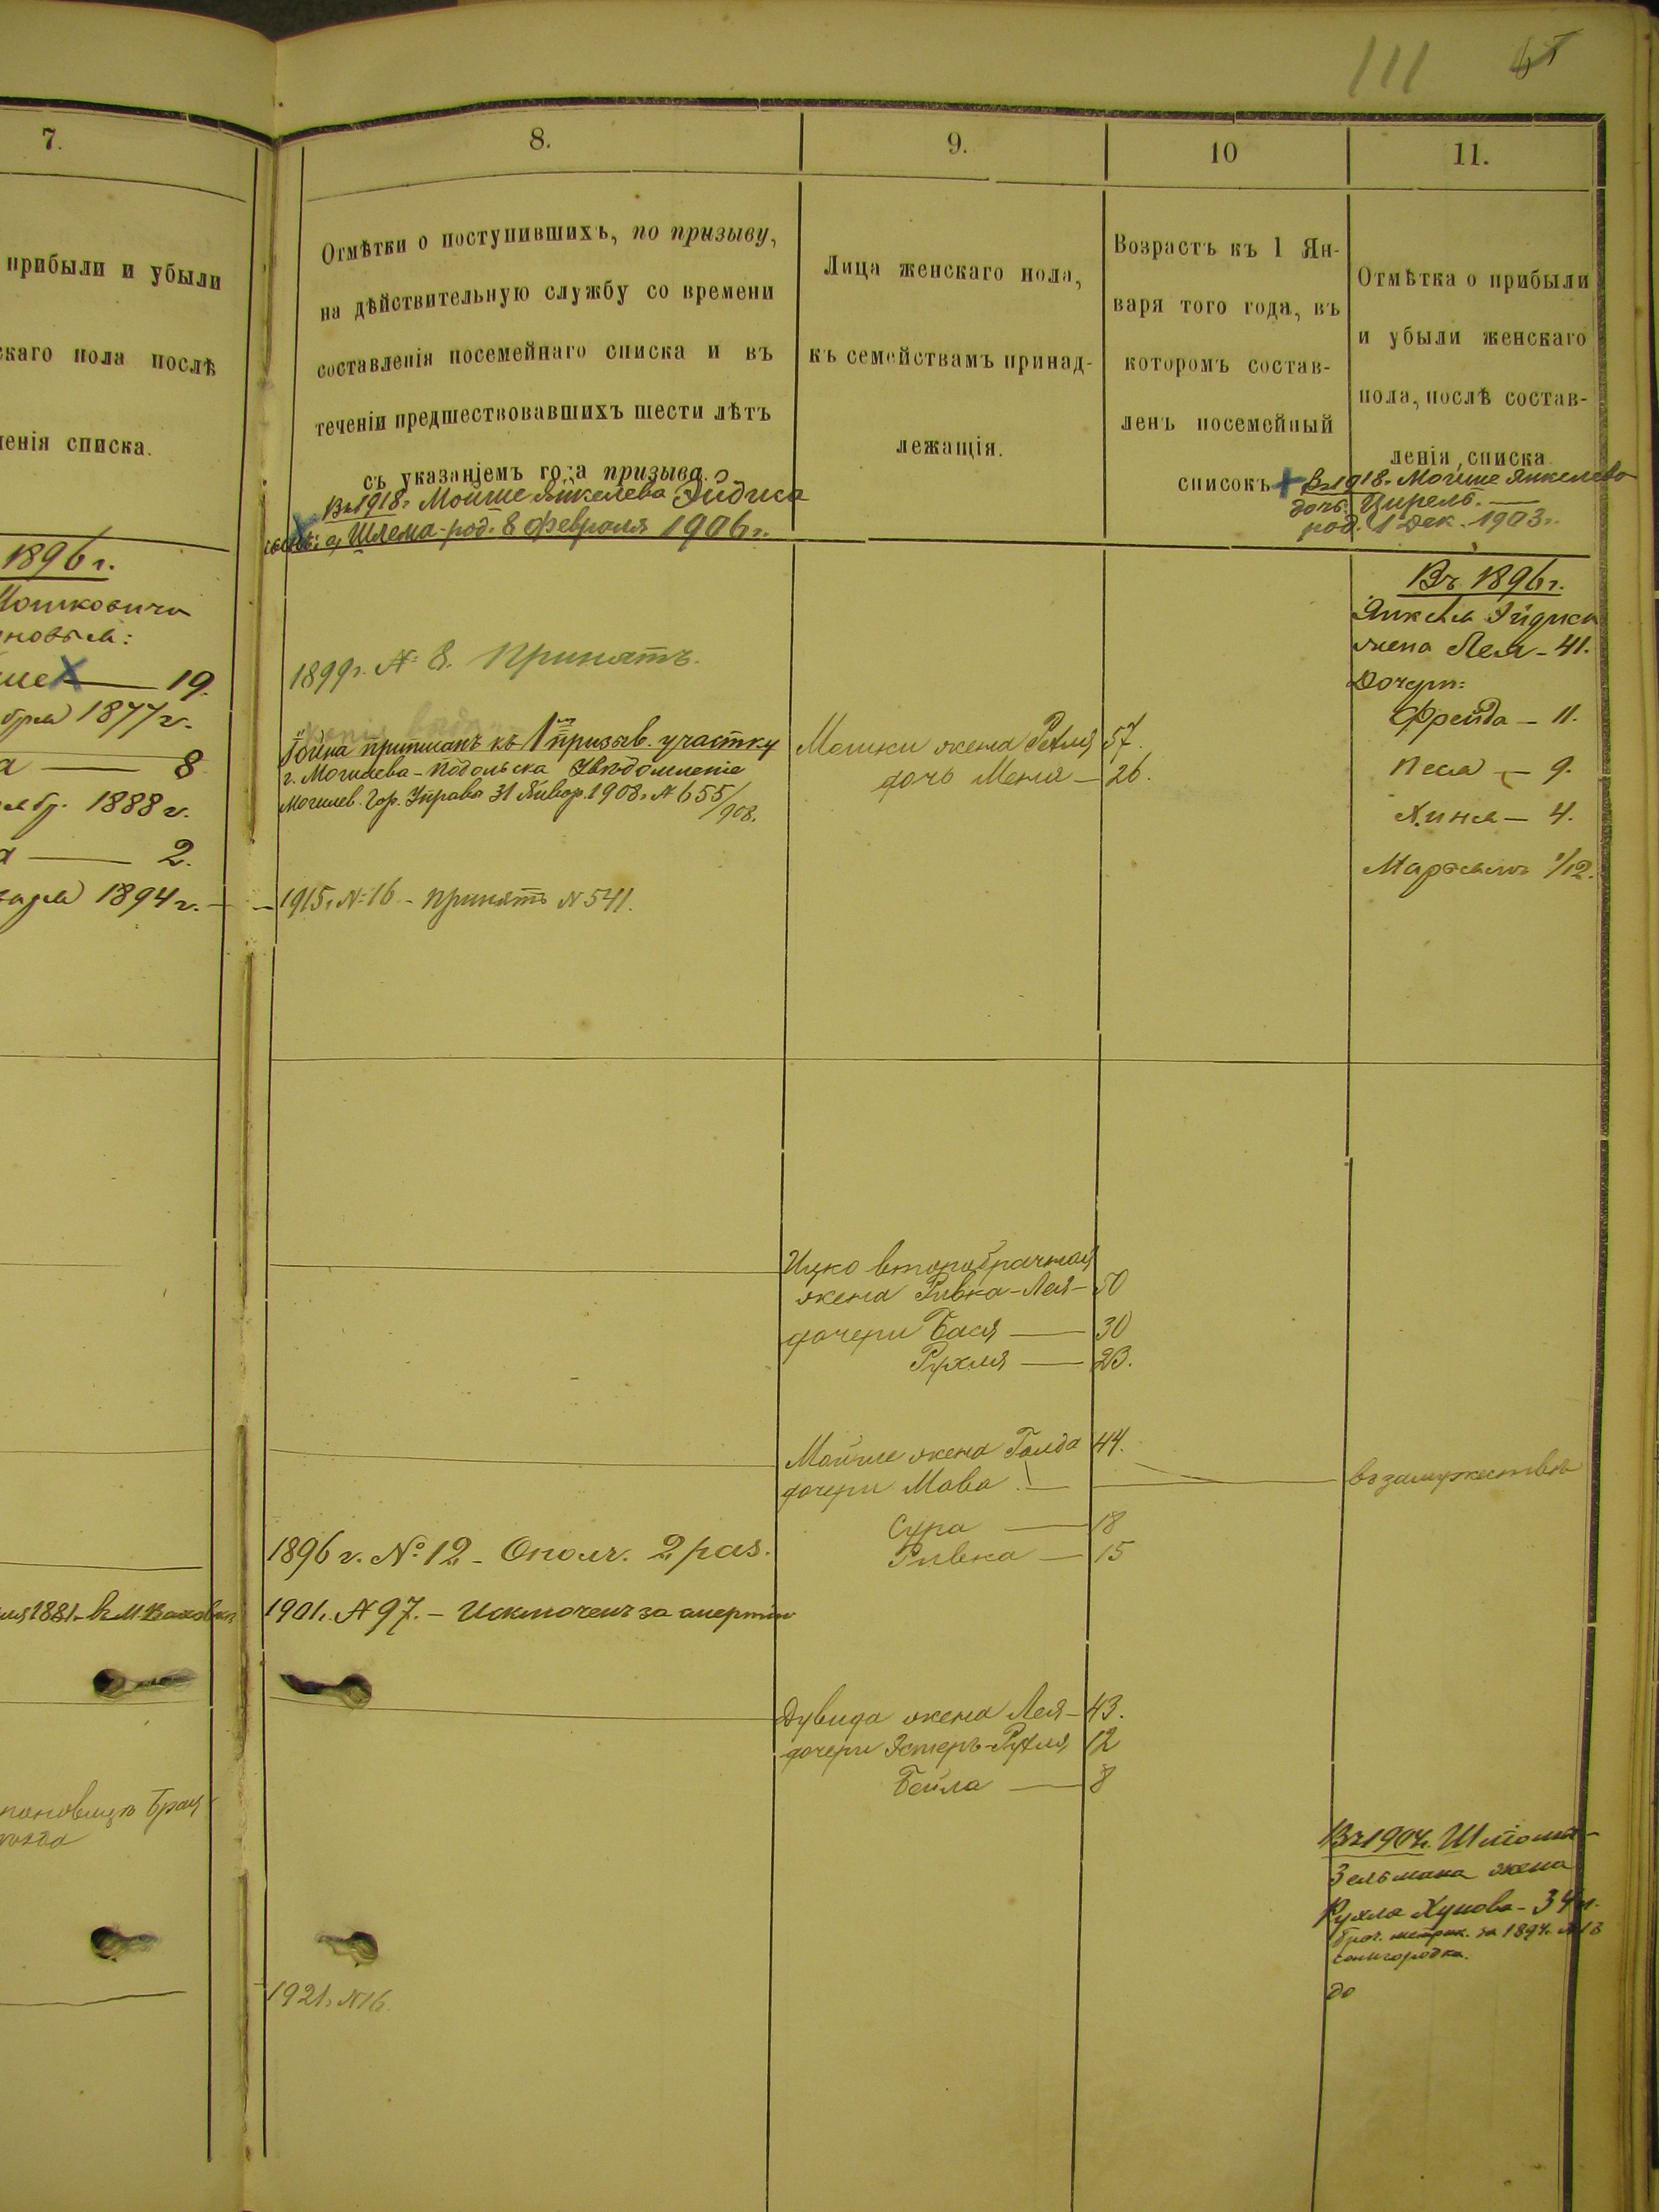 111
7.
прибыли и убыли
скаго пола послѣ
ленія списка.
1896 г.
Мошковича
19.
бря 1877 г.
8
1888 г.
2.
1894 г.
8.
Отмѣтки о поступившихъ, по призыву,
на дѣйствительную службу со времени
составленія посемейнаго списка и въ
теченіи предшествовавшихъ шести лѣтъ
съ указаніемъ года призыва.
Въ 1918 г. Мойше Янкелева Эйдиса
Шлема - род. 8 февраля 1906 г.
1899 г. № 8. Принятъ.
приписанъ къ 1му призыв. участку
г. Могилева-Подольска Увѣдомленіе
Могилев. Гор. Управа 31 Январ. 1908 г. № 655/908.
1915 г. № 16 - принятъ № 541.
1896 г. № 12 - Ополч. 2 раз.
1901 г. № 97. - Исключенъ за смертію
1921 г. № 16.
9.
Лица женскаго пола,
къ семействамъ принад-
лежащія.
10
Возрастъ къ 1 Ян-
варя того года, въ
которомъ состав-
ленъ посемейный
списокъ
Мошки жена Рухля 57.
дочь Меня - 26.
Ицко второбрачная
жена Ривка-Лея - 50
дочери Бася - 30
Рухля - 23.
Мойше жена Голда 44.
дочери Мава -
Сура - 18
Ривка - 15
Дувида жена Лея - 43.
дочери Эстеръ-Рухля 12
Бейла - 8
11.
Отмѣтка о прибыли
и убыли женскаго
пола, послѣ состав-
ленія списка
Въ 1918 г. Мойше Янкелева
дочь Цирель -
род. 1 Дек. 1903 г.
Въ 1896 г.
Янкеля Эйдиса
жена Лея - 41.
Дочери:
Фрейда - 11.
Песя - 9.
Хиня - 4.
1/12.
въ замужествѣ
Въ 1904 г. Шліома-
Зельмана жена
Рухля Хунова - 34 л.
за 1894 г. № 13
до